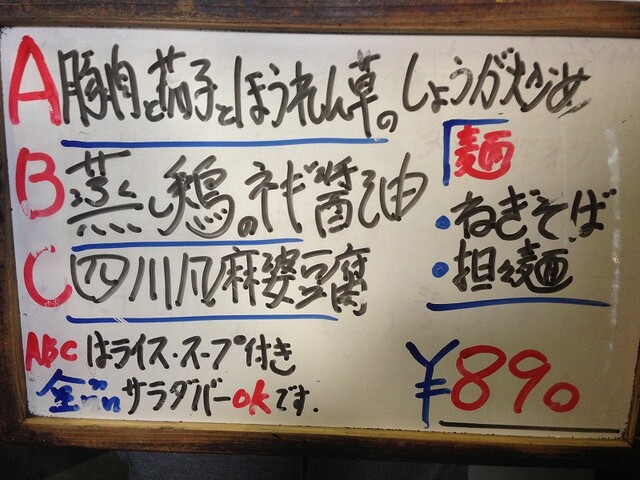 A 豚肉と茄子とほうれん草のしょうが炒め
B 蒸し鶏のネギ醤油
C 四川風麻婆豆腐
麺
・ねぎそば
・担々麺
ABCはライス・スープ付き
全品サラダバーokです.
¥890